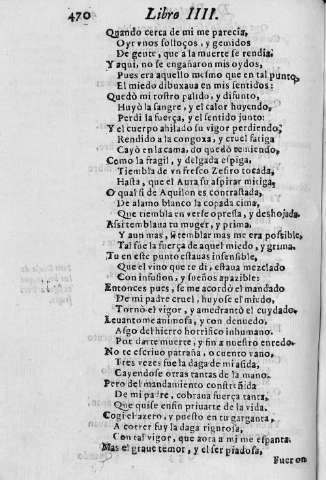 470 Libro IIII.
Quando cerca de mi me parecia,
Oyr vnos solloços, y gemidos
De gente, que a la muerte se rendia.
Y aqui, no se engañaron mis oydos,
Pues era aquello mesmo que en tal punto,
El miedo dibuxaua en mis sentidos:
Quedò mi rostro palido, y difunto,
Huyò la sangre, y el calor huyendo,
Perdi la fuerça, y el sentido junto:
Y el cuerpo ahilado su vigor perdiendo,
Rendido a la congoxa, y cruel fatiga
Cayò en la cama, do quedò temiendo,
Como la fragil, y delgada espiga,
Tiembla de vn fresco Zefiro tocada,
Hasta, que el Aura su aspirar mitiga,
O qual si de Aquilon es contrastada,
De alamo blanco la copada cima,
Que tiembla en verse opressa, y deshojada.
Assi temblaua tu muger, y prima,
Y aun mas, si temblar mas me era possible,
Tal fue la fuerça de aquel miedo, y grima.
Tu en este punto estauas insensible,
Que el vino que te di, estaua mezclado
Con infusion, y sueños apazible:
Entonces pues, se me acordò el mandado
De mi padre cruel, huyose el miedo,
Tornò el vigor, y amedrantò el cuydado.
Leuantome animosa, y con denuedo,
Asgo del hierro horrifico inhumano.
Por darte muerte, y fin a nuestro enredo.
No te escriuo patraña, o cuento vano,
Tres vezes fue la daga de mi asida,
Cayendose otras tantas de la mano.
Pero del mandamiento constreñida
De mi padre, cobraua fuerça tanta,
Que quise enfin priuarte de la vida.
Cogi el azero, y puesto en tu garganta,
A correr fuy la daga rigurosa,
Con tal vigor, que aora a mi me espanta.
Mas el graue temor, y el ser piadosa,
Fueron